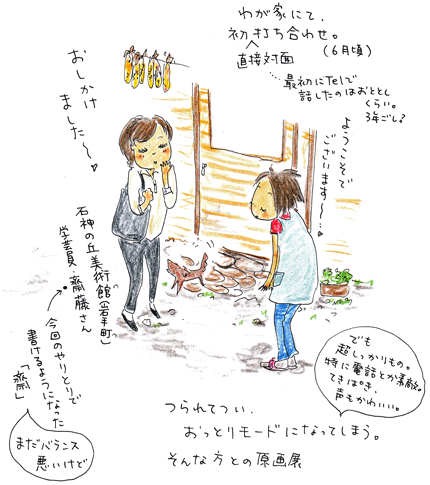 わが家にて、
初打ち合わせ。
直接対面
(6月頃)
最初にTelで
話したのはおととし
くらい。
3年ごし?
おしかけ
ました〜♥
ようこそで
ございます〜…♥
石神の丘美術館(岩手町)
学芸員・齋藤さん
今回のやりとりで
書けるようになった
「齋」
まだバランス
悪いけど
でも
超しっかりもの。
特に電話とか素敵。
てきぱき、
声もかわいい。
つられてつい、
おっとりモードになってしまう。
そんな方との原画展